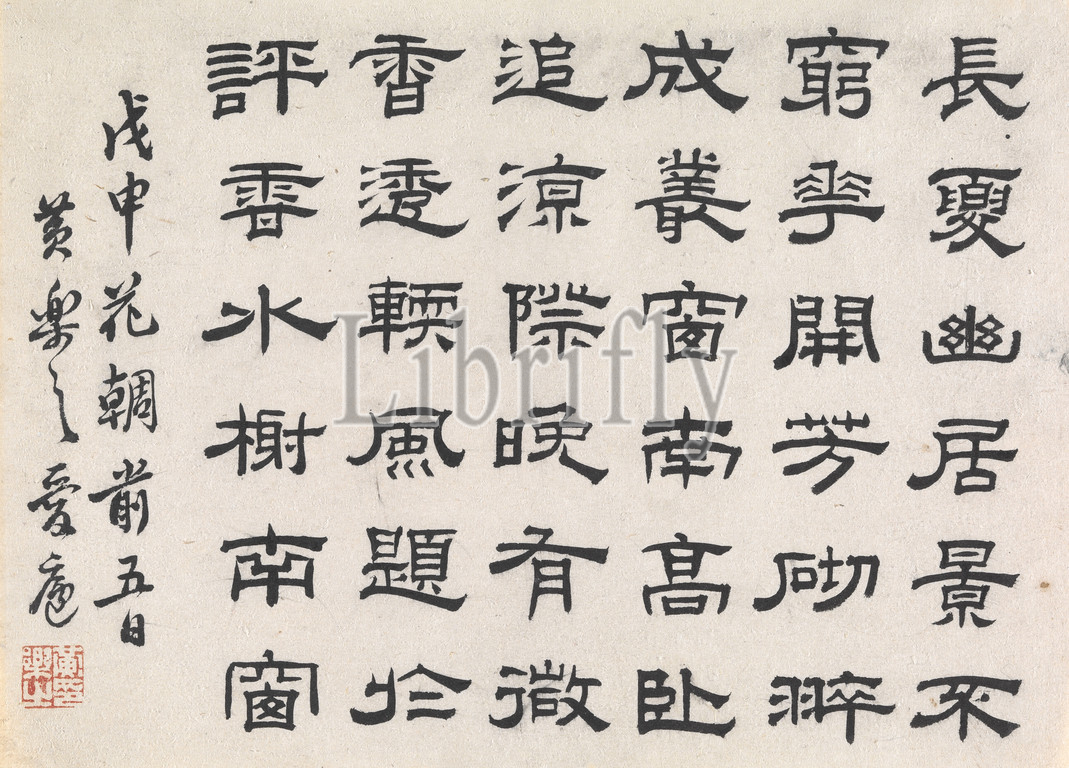 長夏幽居景不
窮花開芳砌翠
成叢窗南高卧
追涼際晚有微
香透輭風題於
評香水榭南窗
戊申花朝前五日
黃樂之愛廬
Librifly